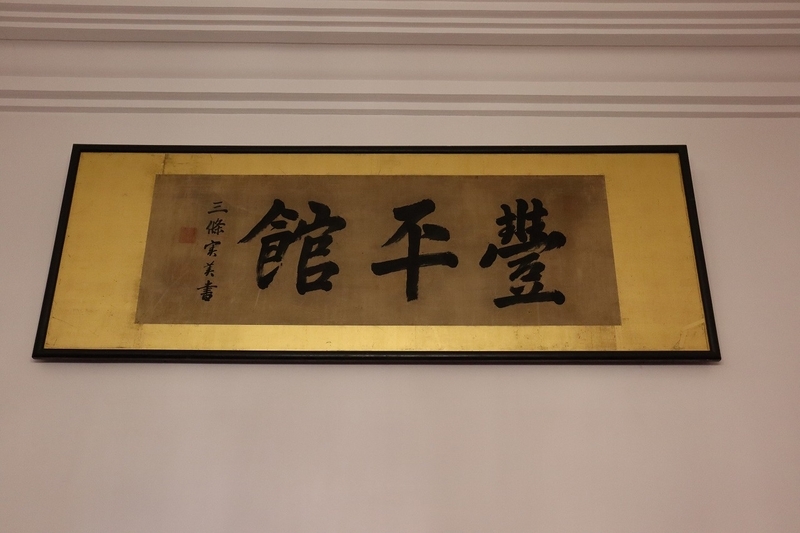 豐平館
三條實美書